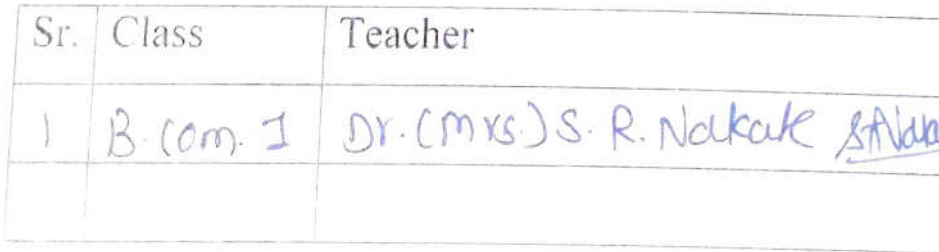 Sr. Class Teacher
1 B.Com. I Dr. (Mrs.) S. R. Nakate